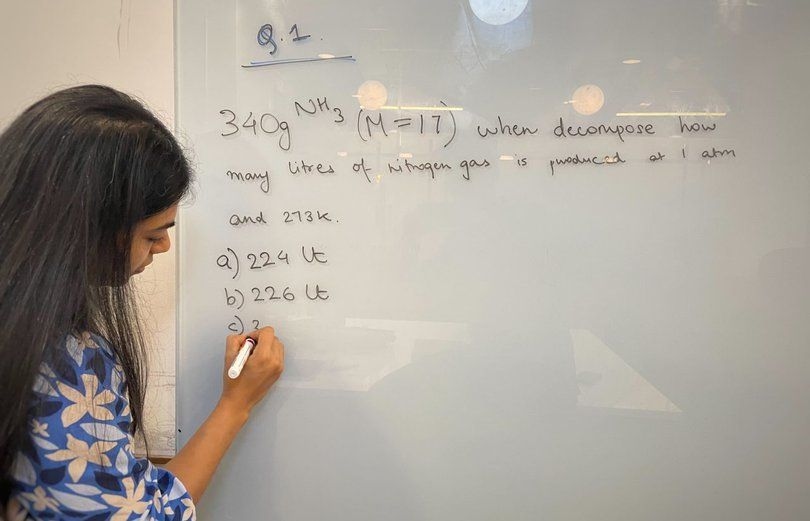 Q.1.
340g NH3 (M=17) when decompose how
many litres of nitrogen gas is produced at 1 atm
and 273K.
a) 224 lt
b) 226 lt
c) 2